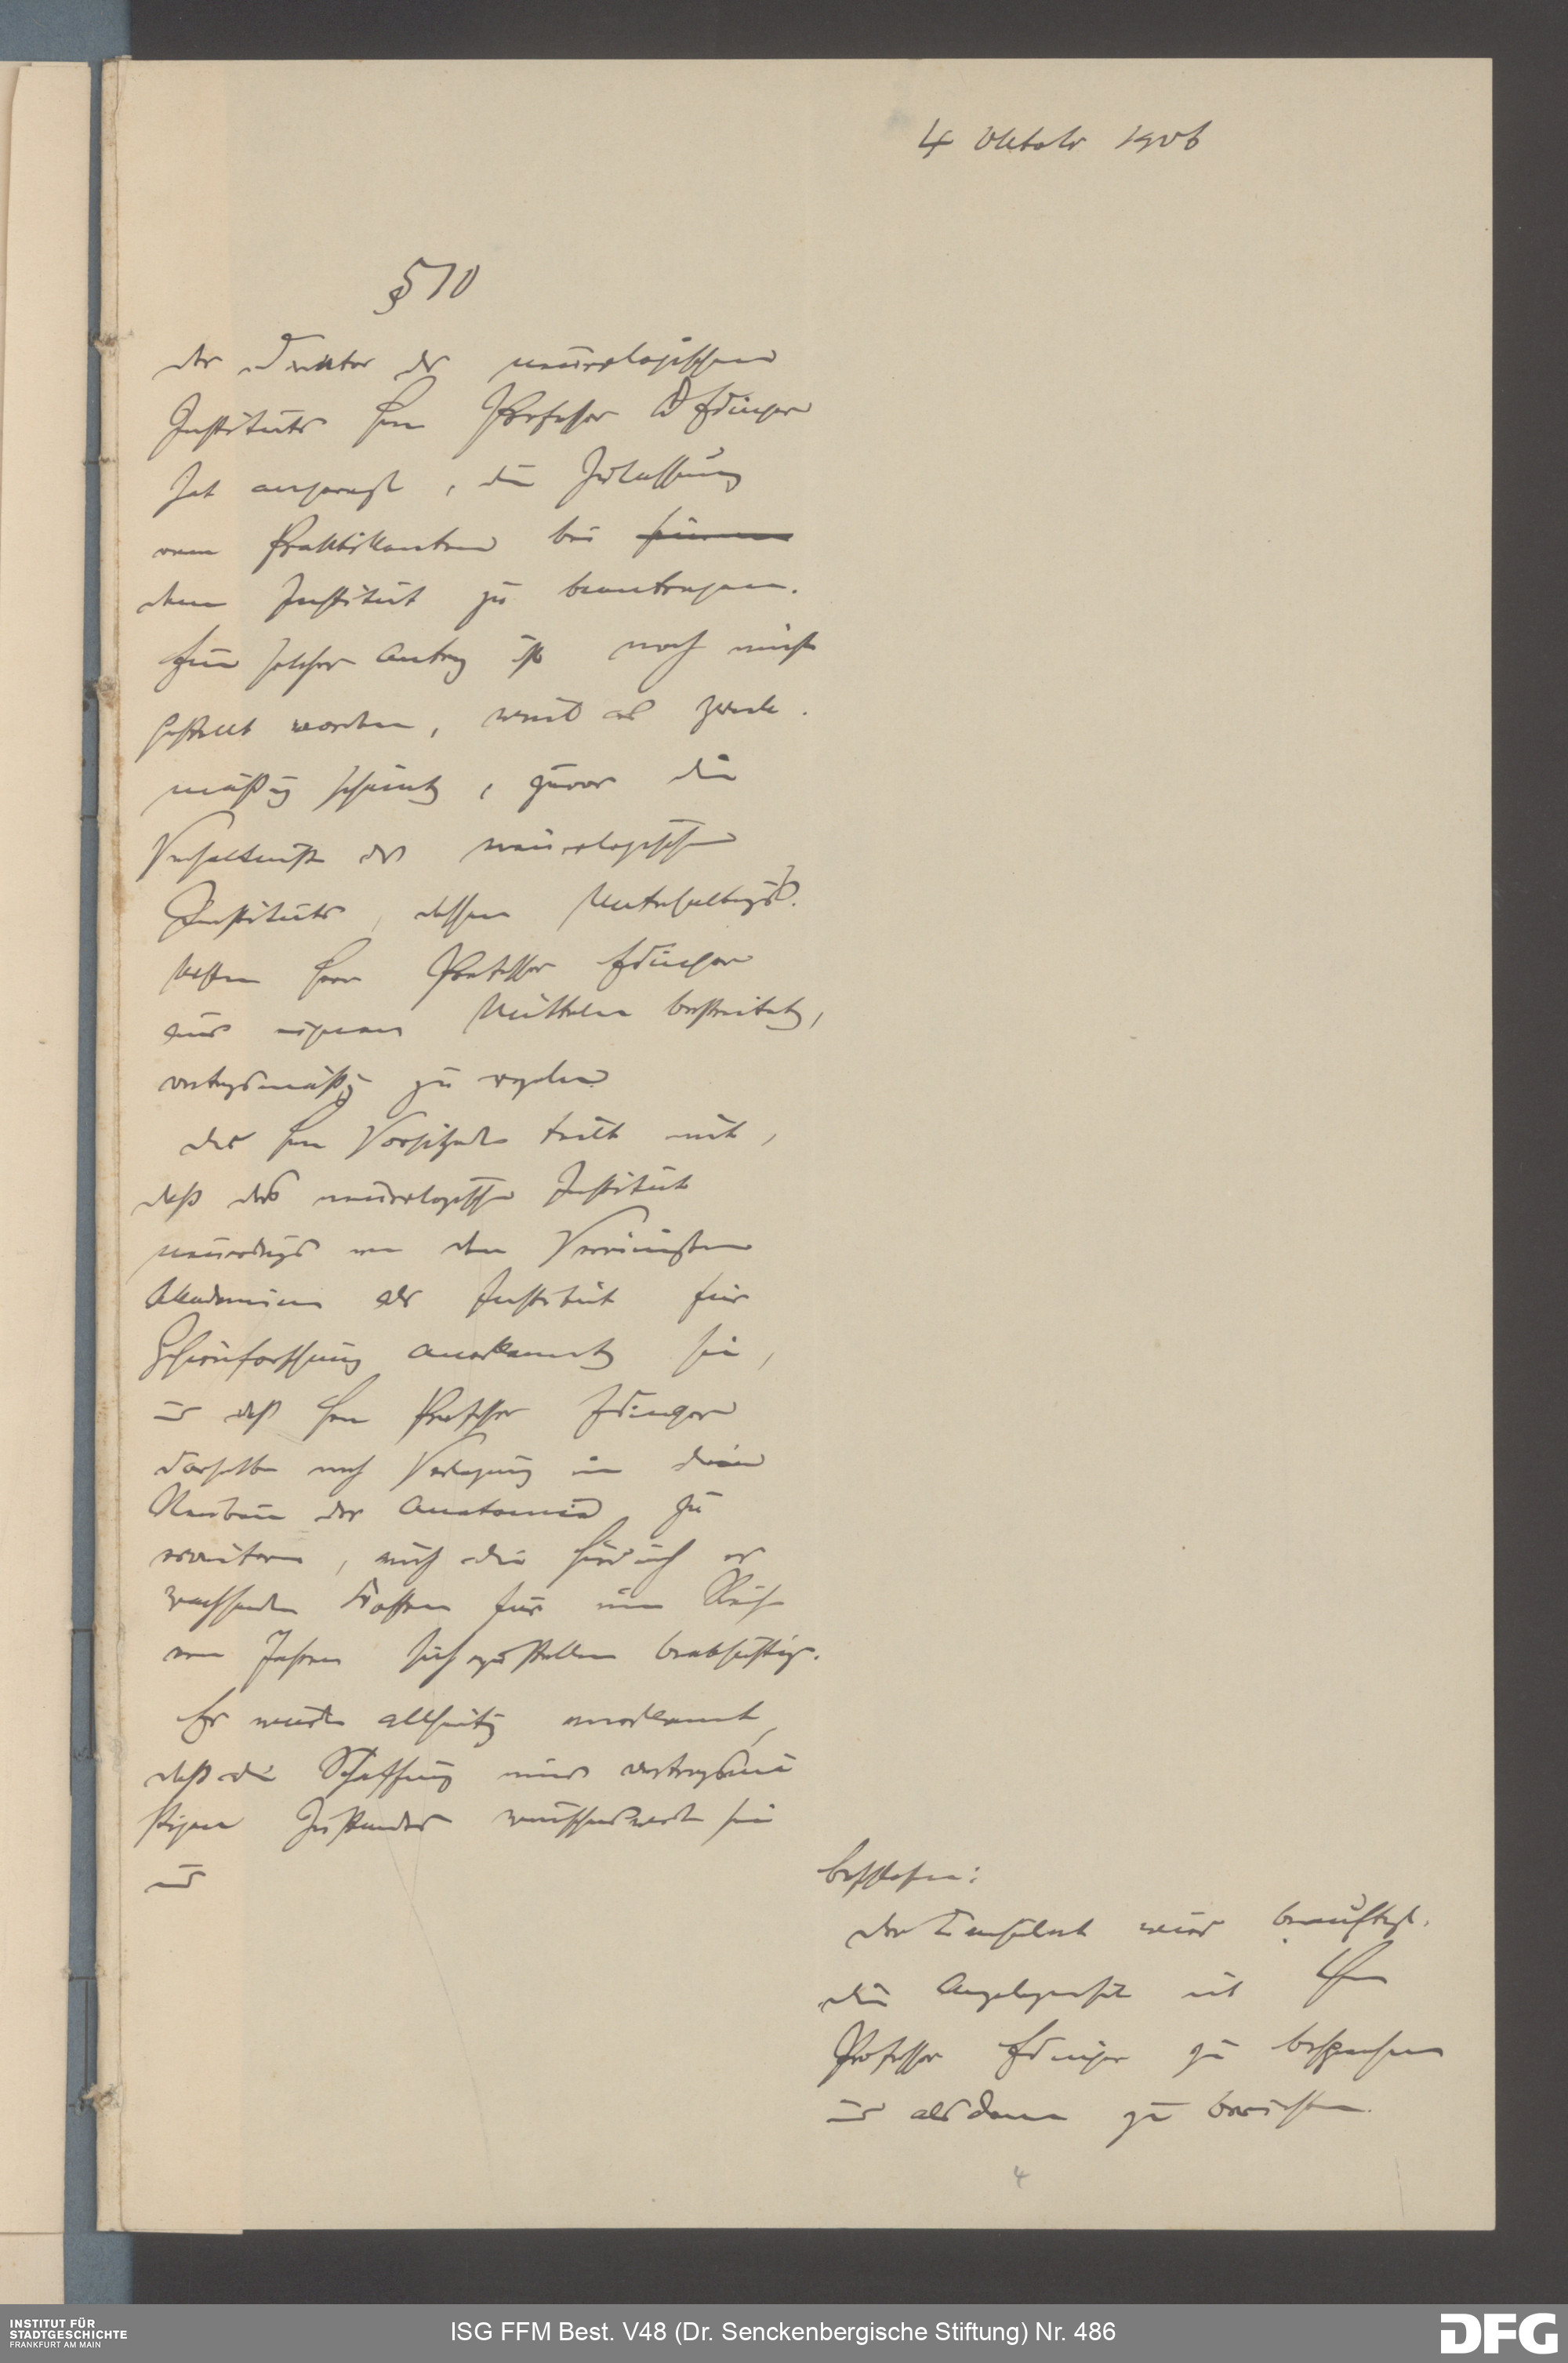 4 Oktobr 1906
§ 10
Der Direktor des neurologischen
Instituts Herr Professor Dr Edinger
hat angeregt, die Zulassung
von Praktikanten bei seinem
dem Institut zu beantragen.
Ein solcher Antrag ist noch nicht
gestellt worden, weil es zweck-
mäßig scheint, zuvor die
Verhältnisse des neurologischen
Instituts, dessen Unterhaltungs-
kosten Herr Professor Edinger
aus eigenen Mitteln bestreitet,
vertragsmäßig zu regeln
Der Herr Vorsitzende teilt mit,
daß das neurologische Institut
neuerdings von den Vereinigten
Akademien als Institut für
Gehirnforschung anerkannt sei,
und daß Herr Professor Edinger
dasselbe nach Verlegung in den
Neubau der Anatomie zu
erweitern, auch die hierdurch er
wachsenden Kosten für eine Reihe
von Jahren sicherzustellen beabsichtige.
Es wurde allseitig anerkannt,
daß die Schaffung eines vertragsmä
ßigen Zustandes wünschenswert sei
und
beschlossen:
der Consulent wird beauftragt,
die Angelegenheit mit Herrn
Professor Edinger zu besprechen
und alsdann zu berichten.
4
INSTITUT FÜR
STADTGESCHICHTE
FRANKFURT AM MAIN
ISG FFM Best. V48 (Dr. Senckenbergische Stiftung) Nr. 486
DFG